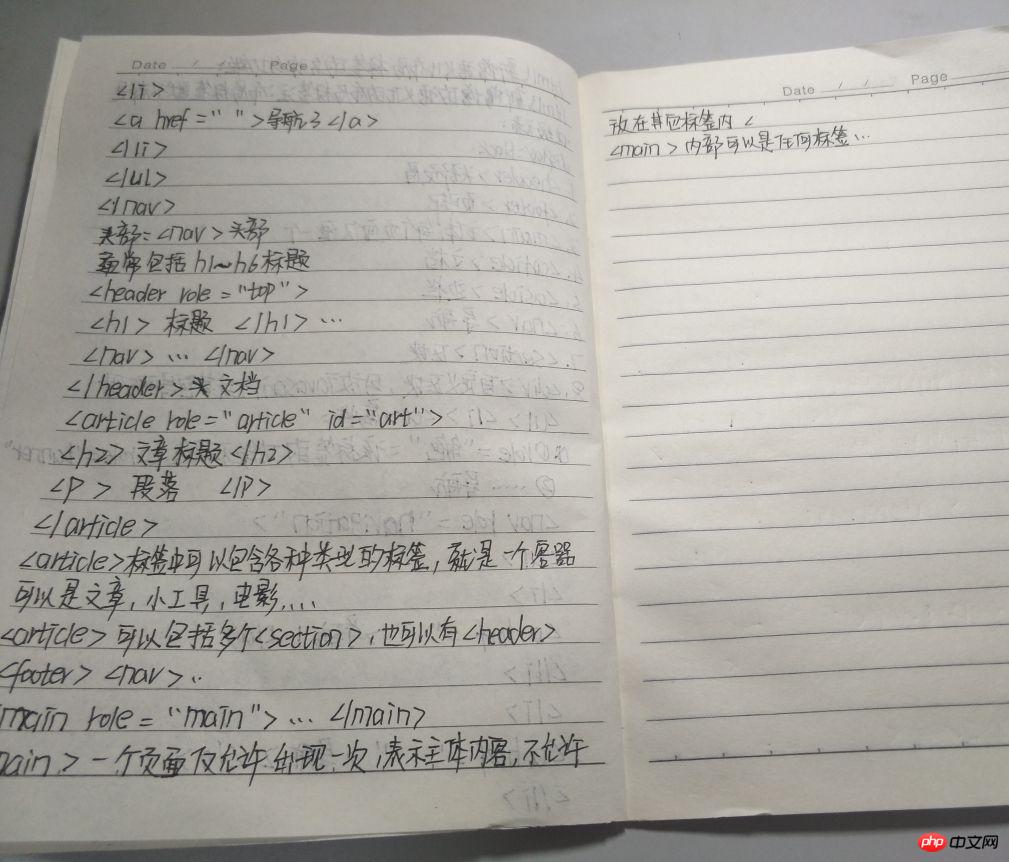 Date / / Page
<li>
<a href=" ">导航3</a>
</li>
</ul>
</nav>
头部:<nav>头部
通常包括h1~h6标题
<header role="top">
<h1>标题 </h1>…
<nav>… </nav>
</header>头文档
<article role="article" id="art">
<h2>文章标题</h2>
<P> 段落 </P>
</article>
<article>标签中可以包含各种类型的标签,就是一个容器
可以是文章,小工具,电影....
<article>可以包括多个<section>,也可以有<header>
<footer><nav>..
main role="main">… </main>
main>一个页面仅允许出现一次,表示主体内容,不允许
Date / / Page
放在其他标签内<
<main>内部可以是任何标签…
php 中文网